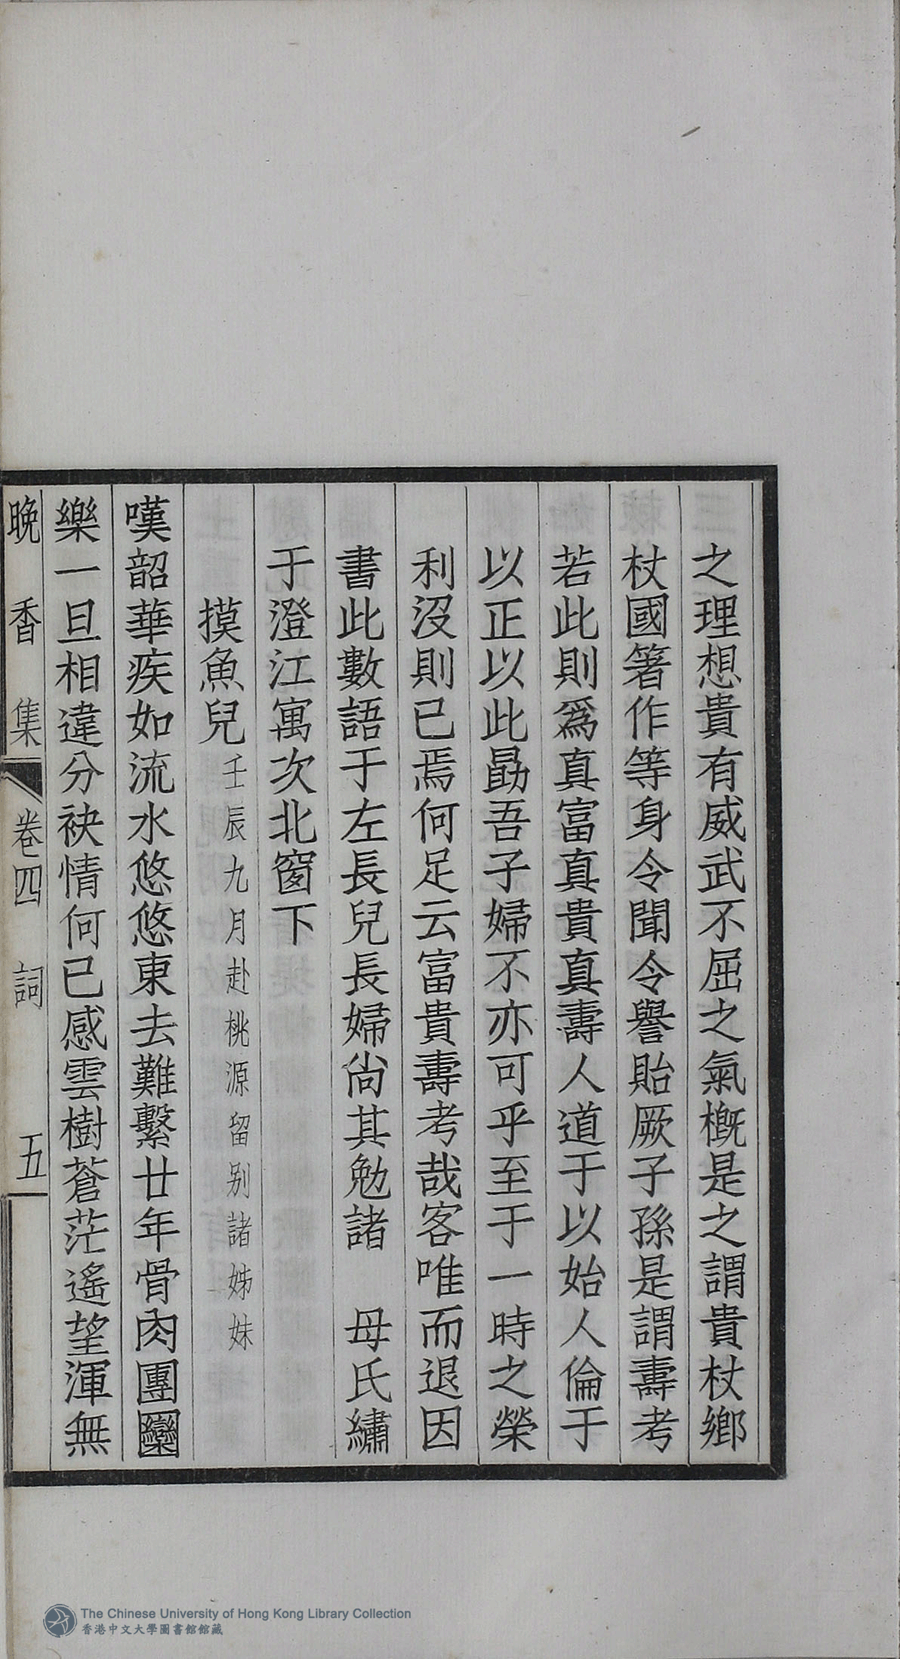 之理想貴有威武不屈之氣概是之謂貴杖鄉
杖國箸作等身令聞令譽貽厥子孫是謂壽考
若此則爲真富真貴真壽人道于以始人倫于
以正以此勗吾子婦不亦可乎至于一時之榮
利沒則已焉何足云富貴壽考哉客唯而退因
書此數語于左長兒長婦尙其勉諸　母氏繡
于澄江寓次北窗下
摸魚兒壬辰九月赴桃源留别諸姊妹
嘆韶華疾如流水悠悠東去難繫廿年骨肉團圞
樂一旦相違分袂情何已感雲樹蒼茫遙望渾無
晚香集　卷四　詞　五
The Chinese University of Hong Kong Library Collection
香港中文大學圖書館館藏